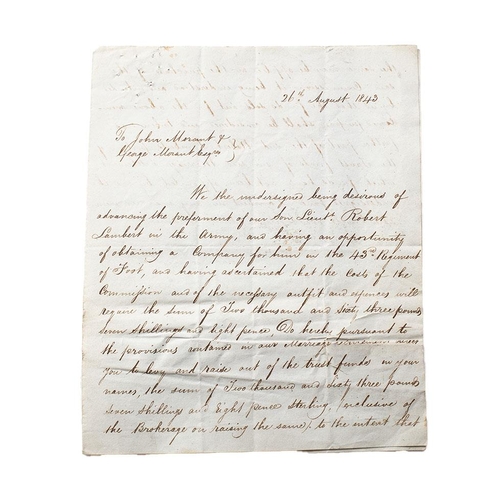 26th August 1843
To John Morant &
George Morant Esqrs
We the undersigned being desirous of
advancing the preferment of our Son Lieutt. Robert
Lambert in the Army, and having an opportunity
of obtaining a Company for him in the 43d. Regiment
of Foot, and having ascertained that the Costs of the
Commission and of the necessary outfit and expences will
require the sum of Two thousand and sixty three pounds
seven shillings and eight pence, Do hereby pursuant to
the provisions contained in our Marriage
you to levy and raise out of the trust funds in your
names, the sum of Two thousand and sixty three pounds
seven shillings and Eight pence Sterling, (exclusive of
the Brokerage on raising the same) to the extent that